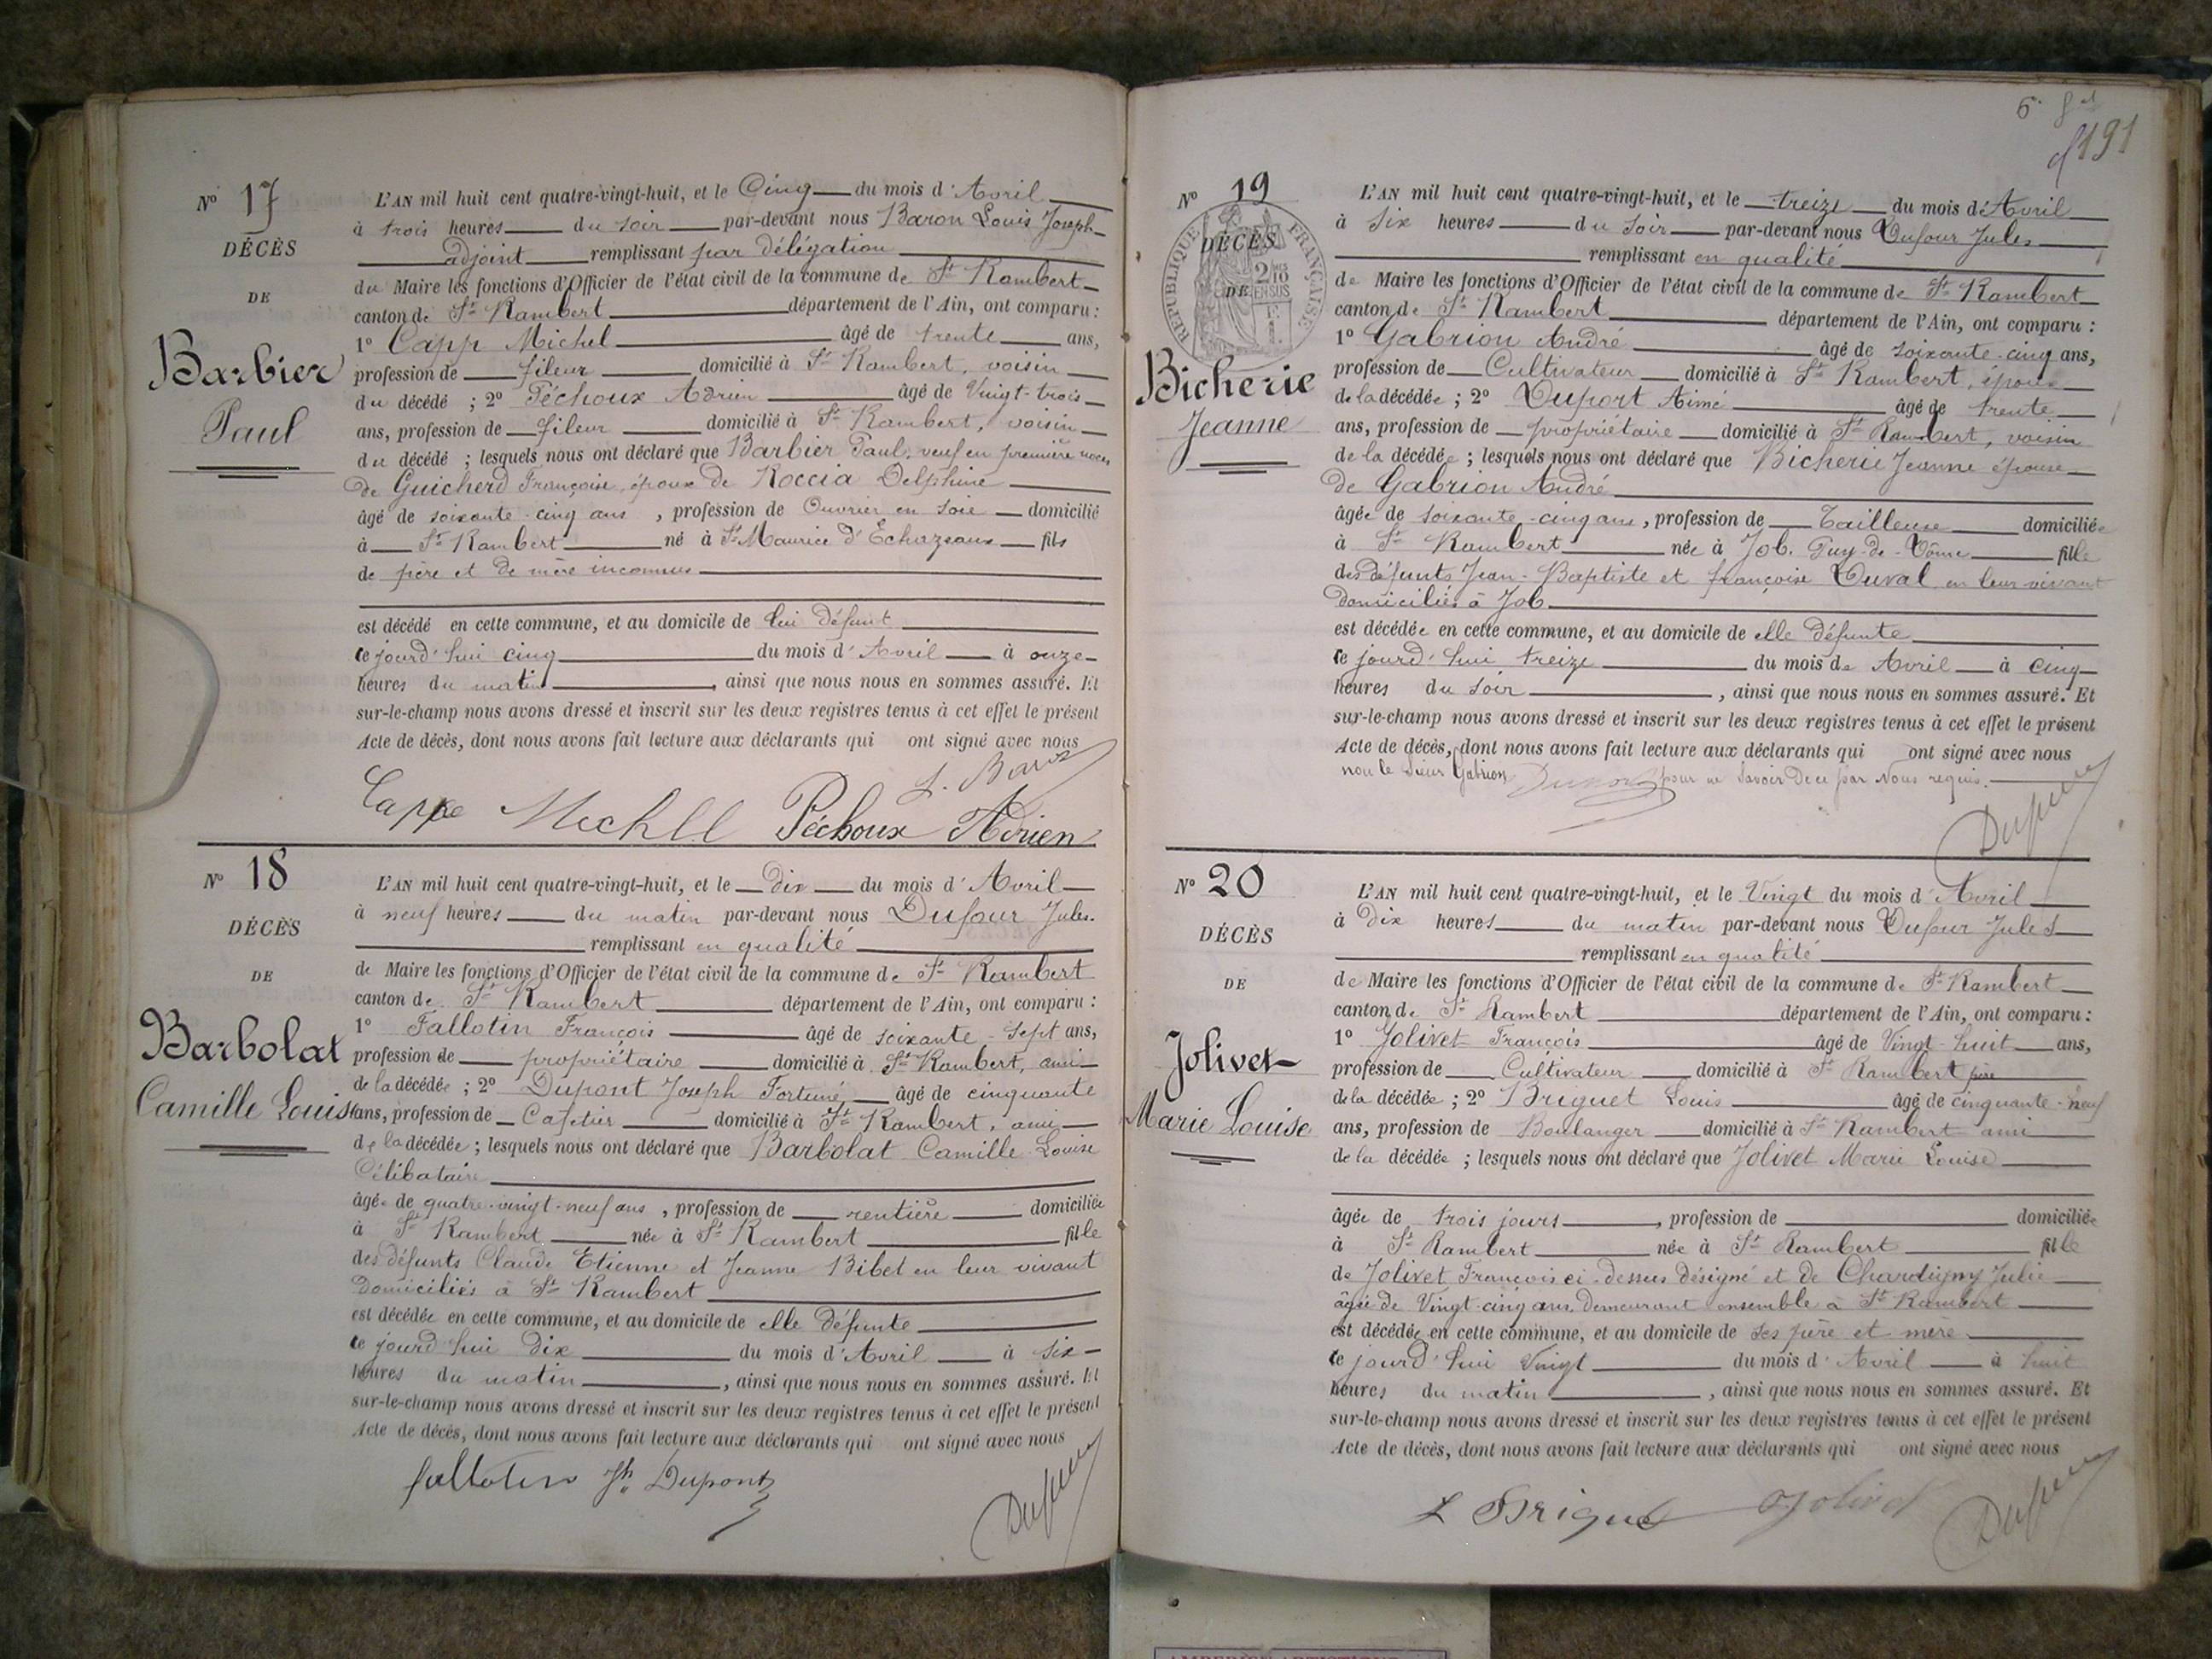 N° 17
DÉCÈS
DE
Barbier
Paul
L'AN mil huit cent quatre-vingt-huit, et le Cinq du mois d'Avril
à trois heures du soir par-devant nous Baron Louis Joseph
adjoint remplissant par délégation
du Maire les fonctions d'Officier de l'état civil de la commune de St Rambert
canton de St Rambert département de l'Ain, ont comparu :
1° Capp Michel âgé de trente ans,
profession de fileur domicilié à St Rambert, voisin
du décédé ; 2° Péchoux Adrien âgé de Vingt-trois
ans, profession de fileur domicilié à St Rambert, voisin
du décédé ; lesquels nous ont déclaré que Barbier Paul, veuf en première noces
de Guicherd Françoise, époux de Roccia Delphine
âgé de soixante-cinq ans, profession de Ouvrier en soie domicilié
à St Rambert né à St Maurice d'Echazeaux fils
de père et de mère inconnus
est décédé en cette commune, et au domicile de lui défunt
ce jourd'hui cinq du mois d'Avril à onze
heures du matin, ainsi que nous nous en sommes assuré. Et
sur-le-champ nous avons dressé et inscrit sur les deux registres tenus à cet effet le présent
Acte de décès, dont nous avons fait lecture aux déclarants qui ont signé avec nous
L. Baron
Cappe Michll Péchoux Adrien
N° 18
DÉCÈS
DE
Barbolat
Camille Louise
L'AN mil huit cent quatre-vingt-huit, et le Dix du mois d'Avril
à neuf heures du matin par-devant nous Dufour Jules
remplissant en qualité
de Maire les fonctions d'Officier de l'état civil de la commune de St Rambert
canton de St Rambert département de l'Ain, ont comparu :
1° Fallotin François âgé de soixante-sept ans,
profession de propriétaire domicilié à St Rambert, ami
de la décédée ; 2° Dupont Joseph Fortuné âgé de cinquante
ans, profession de Cafetier domicilié à St Rambert, ami
de la décédée ; lesquels nous ont déclaré que Barbolat Camille Louise
Célibataire
âgée de quatre-vingt-neuf ans, profession de rentière domiciliée
à St Rambert née à St Rambert fille
des défunts Claude Etienne et Jeanne Bibet en leur vivant
Domiciliés à St Rambert
est décédée en cette commune, et au domicile de elle défunte
ce jourd'hui dix du mois d'Avril à six
heures du matin, ainsi que nous nous en sommes assuré. Et
sur-le-champ nous avons dressé et inscrit sur les deux registres tenus à cet effet le présent
Acte de décès, dont nous avons fait lecture aux déclarants qui ont signé avec nous
fallotin Jh Dupont
Dufour
191
N° 19
RÉPUBLIQUE FRANÇAISE
2/10 EN SUS
DÉCÈS
DE
Bicherie
Jeanne
L'AN mil huit cent quatre-vingt-huit, et le treize du mois de Avril
à Six heures du soir par-devant nous Dufour Jules
remplissant en qualité
de Maire les fonctions d'Officier de l'état civil de la commune de St Rambert
canton de St Rambert département de l'Ain, ont comparu :
1° Gabrion André âgé de soixante-cinq ans,
profession de Cultivateur domicilié à St Rambert, époux
de la décédée ; 2° Duport Aimé âgé de trente
ans, profession de propriétaire domicilié à St Rambert, voisin
de la décédée ; lesquels nous ont déclaré que Bicherie Jeanne épouse
de Gabrion André
âgée de soixante-cinq ans, profession de Tailleuse domiciliée
à St Rambert née à Job. Puy-de-Dôme fille
des défunts Jean-Baptiste et françoise Duval en leur vivant
Domiciliés à Job
est décédée en cette commune, et au domicile de elle défunte
ce jourd'hui treize du mois de Avril à cinq
heures du soir, ainsi que nous nous en sommes assuré. Et
sur-le-champ nous avons dressé et inscrit sur les deux registres tenus à cet effet le présent
Acte de décès, dont nous avons fait lecture aux déclarants qui ont signé avec nous
non le sieur Gabrion pour ne savoir De ce par Nous requis.
Duport
Dufour
N° 20
DÉCÈS
DE
Jolivet
Marie Louise
L'AN mil huit cent quatre-vingt-huit, et le Vingt du mois d'Avril
à Dix heures du matin par-devant nous Dufour Jules
remplissant en qualité
de Maire les fonctions d'Officier de l'état civil de la commune de St Rambert
canton de St Rambert département de l'Ain, ont comparu :
1° Jolivet François âgé de Vingt-huit ans,
profession de Cultivateur domicilié à St Rambert père
de la décédée ; 2° Briguet Louis âgé de cinquante-neuf
ans, profession de Boulanger domicilié à St Rambert ami
de la décédée ; lesquels nous ont déclaré que Jolivet Marie Louise
âgée de trois jours, profession de domiciliée
à St Rambert née à St Rambert fille
de Jolivet François ci-dessus désigné et de Chardigny Julie
âgée de Vingt-cinq ans, Demeurant ensemble à St Rambert
est décédée en cette commune, et au domicile de ses père et mère
ce jourd'hui Vingt du mois d'Avril à huit
heures du matin, ainsi que nous nous en sommes assuré. Et
sur-le-champ nous avons dressé et inscrit sur les deux registres tenus à cet effet le présent
Acte de décès, dont nous avons fait lecture aux déclarants qui ont signé avec nous
L Briguet Jolivet
Dufour